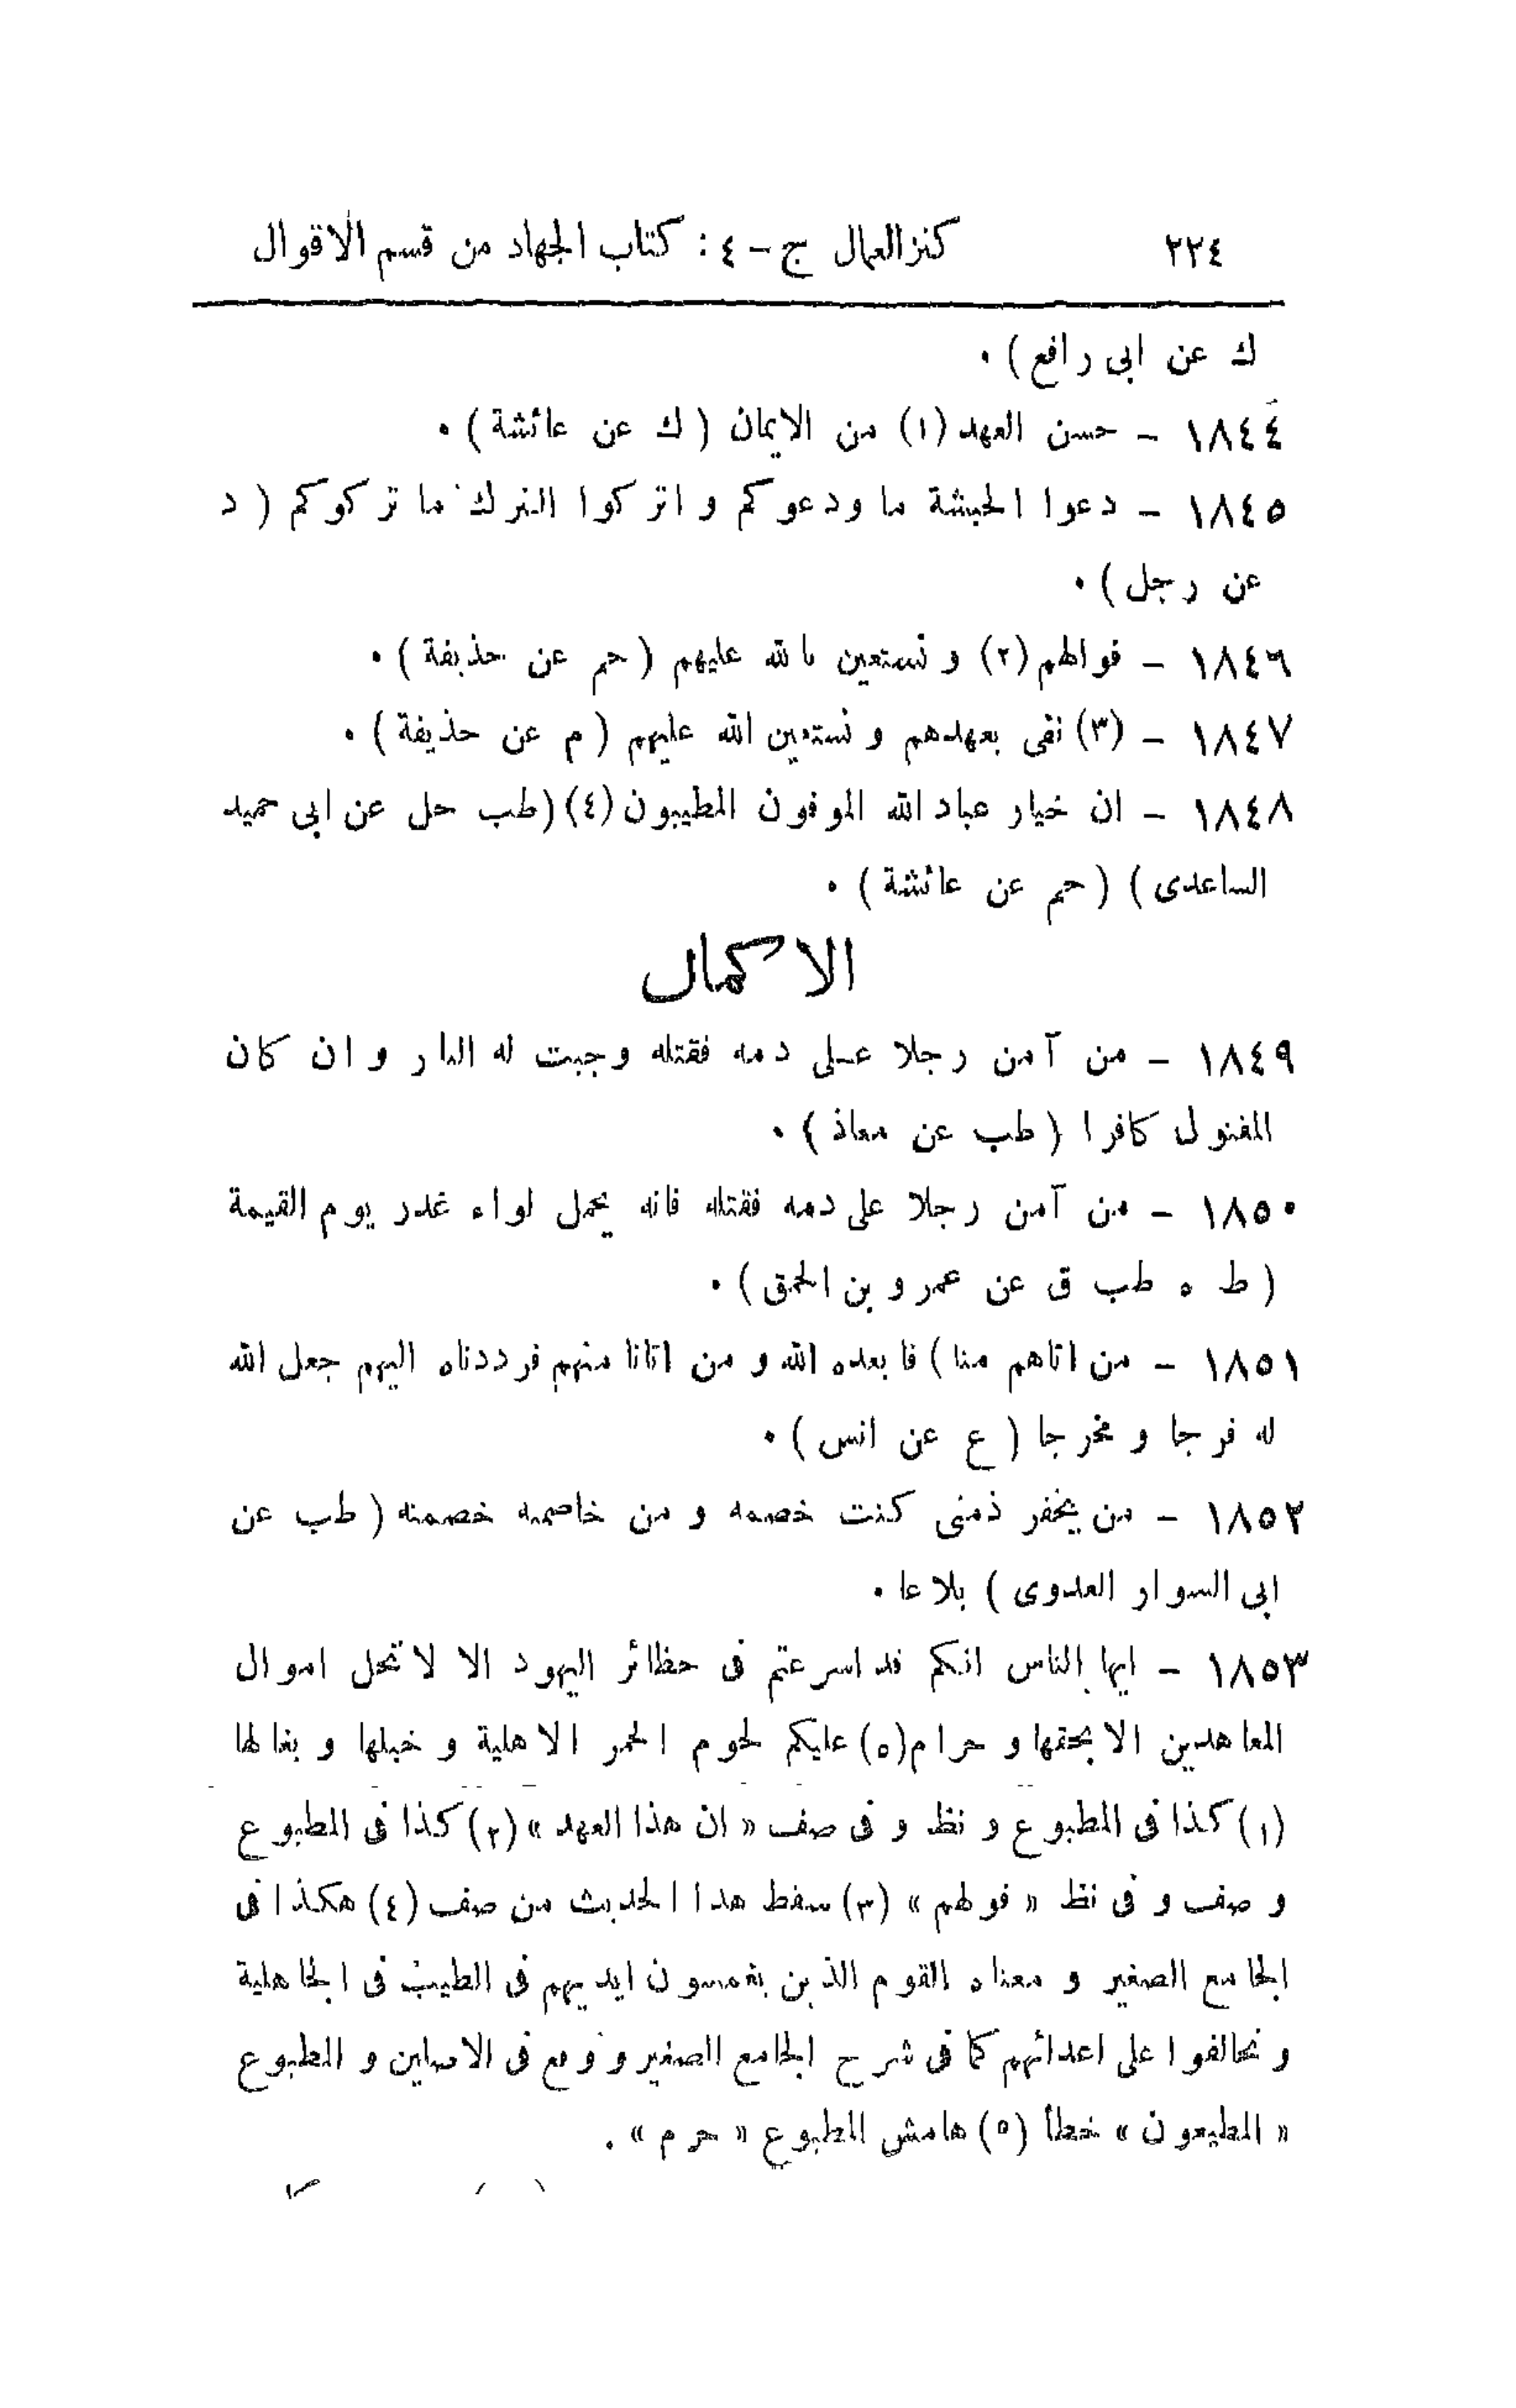 ٢٢٤ كنز العمال ج – ٤ : كتاب الجهاد من قسم الاقوال
ك عن ابى رافع ) ٠
١٨٤٤ – حسن العهد (١) من الايمان ( ك عن عائشة ) ٠
١٨٤٥ – دعوا الحبشة ما ودعوكم و اتركوا الترك ما تركوكم ( د
عن رجل ) ٠
١٨٤٦ – فوالهم (٢) و نستعين بالله عليهم ( حم عن حذيفة ) ٠
١٨٤٧ – (٣) نفى بعهدهم و نستعين الله عليهم ( م عن حذيفة ) ٠
١٨٤٨ – ان خيار عباد الله الموفون المطيبون (٤) ( طب حل عن ابى حميد
الساعدى ) ( حم عن عائشة ) ٠
الاكمال
١٨٤٩ – من آمن رجلا على دمه فقتله وجبت له النار و ان كان
المقتول كافرا ( طب عن معاذ ) ٠
١٨٥٠ – من آمن رجلا على دمه فقتله فانه يحمل لواء غدر يوم القيمة
( ط ه طب ق عن عمرو بن الحمق ) ٠
١٨٥١ – من اتاهم منا ) فابعده الله و من اتانا منهم فرددناه اليهم جعل الله
له فرجا و مخرجا ( ع عن انس ) ٠
١٨٥٢ – من يخفر ذمتى كنت خصمه و من خاصمته خصمته ( طب عن
ابى السوار العدوى ) بلاغا ٠
١٨٥٣ – ايها الناس انكم قد اسرعتم فى حظائر اليهود الا لا تحل اموال
المعاهدين الا بحقها و حرام (٥) عليكم لحوم الحمر الاهلية و خيلها و بغالها
(١) كذا فى المطبوع و نظ و فى صف « ان هذا العهد » (٢) كذا فى المطبوع
و صف و فى نظ « فولهم » (٣) سقط هذا الحديث من صف (٤) هكذا فى
الجامع الصغير و معناه القوم الذين يغمسون ايديهم فى الطيب فى الجاهلية
و تحالفوا على اعدائهم كما فى شرح الجامع الصغير و وقع فى الاصلين و المطبوع
« المطيعون » خطأ (٥) هامش المطبوع « حرم » .